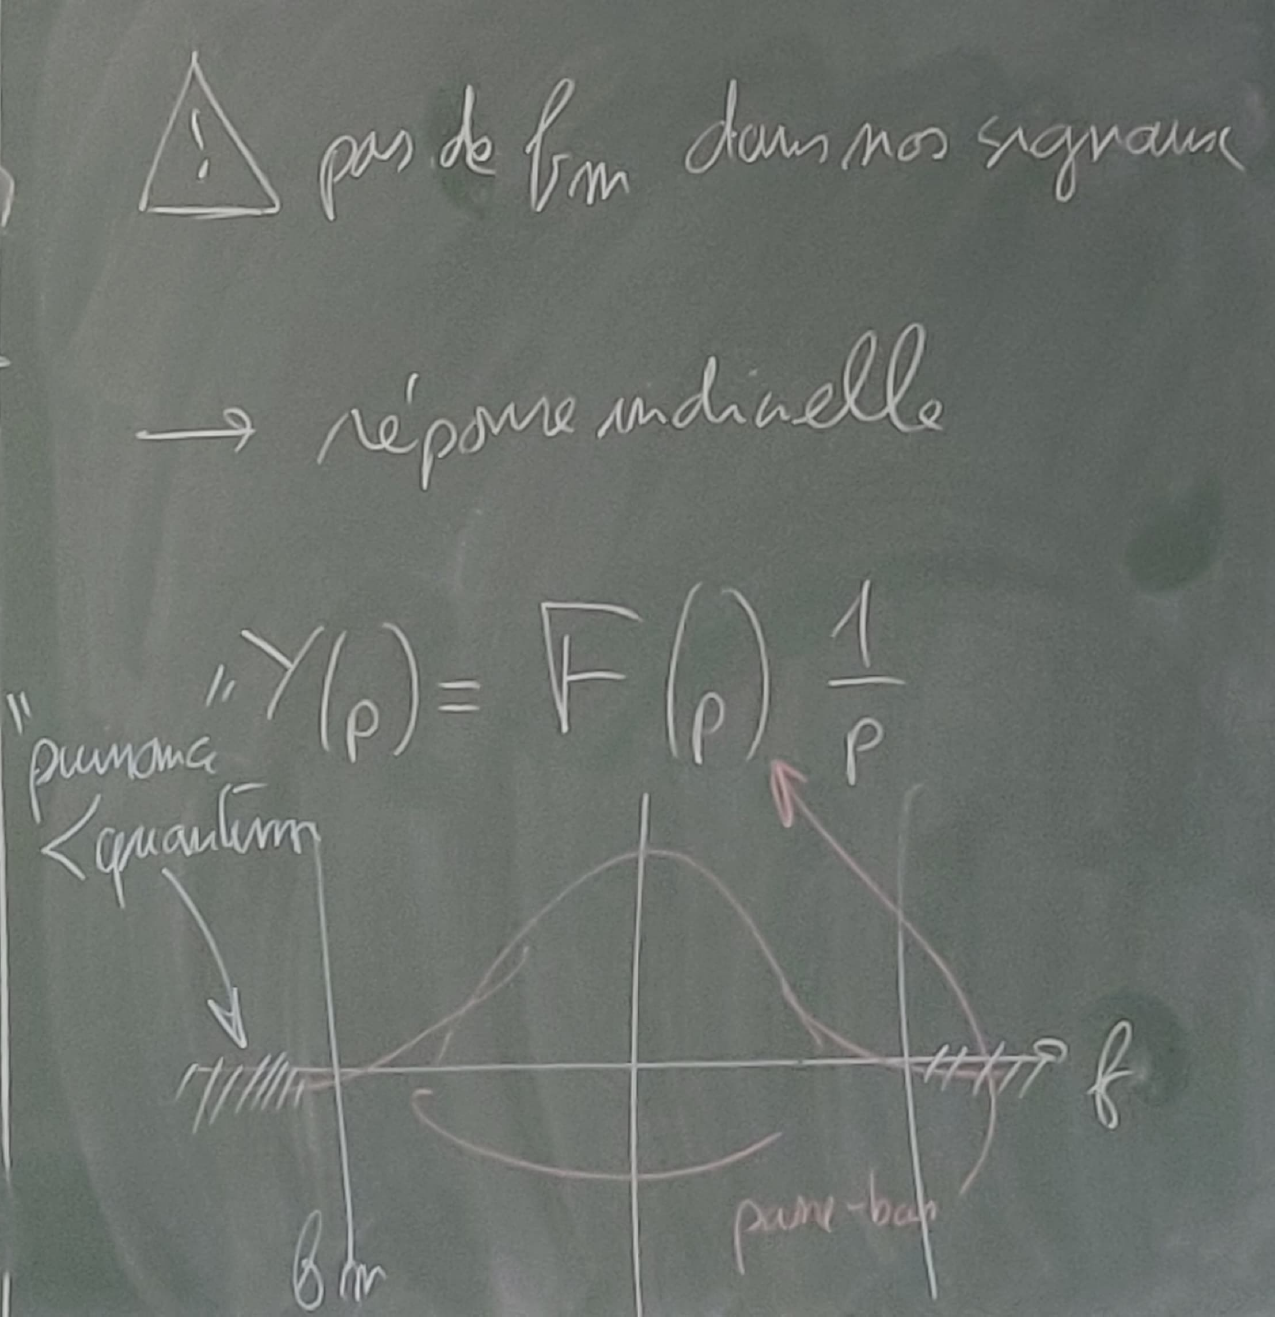 ! pas de fm dans nos signaux
→ réponse indicielle
Y(p) = F(p) 1/p
"puissance"
< quantum
f
passe-bas
fm